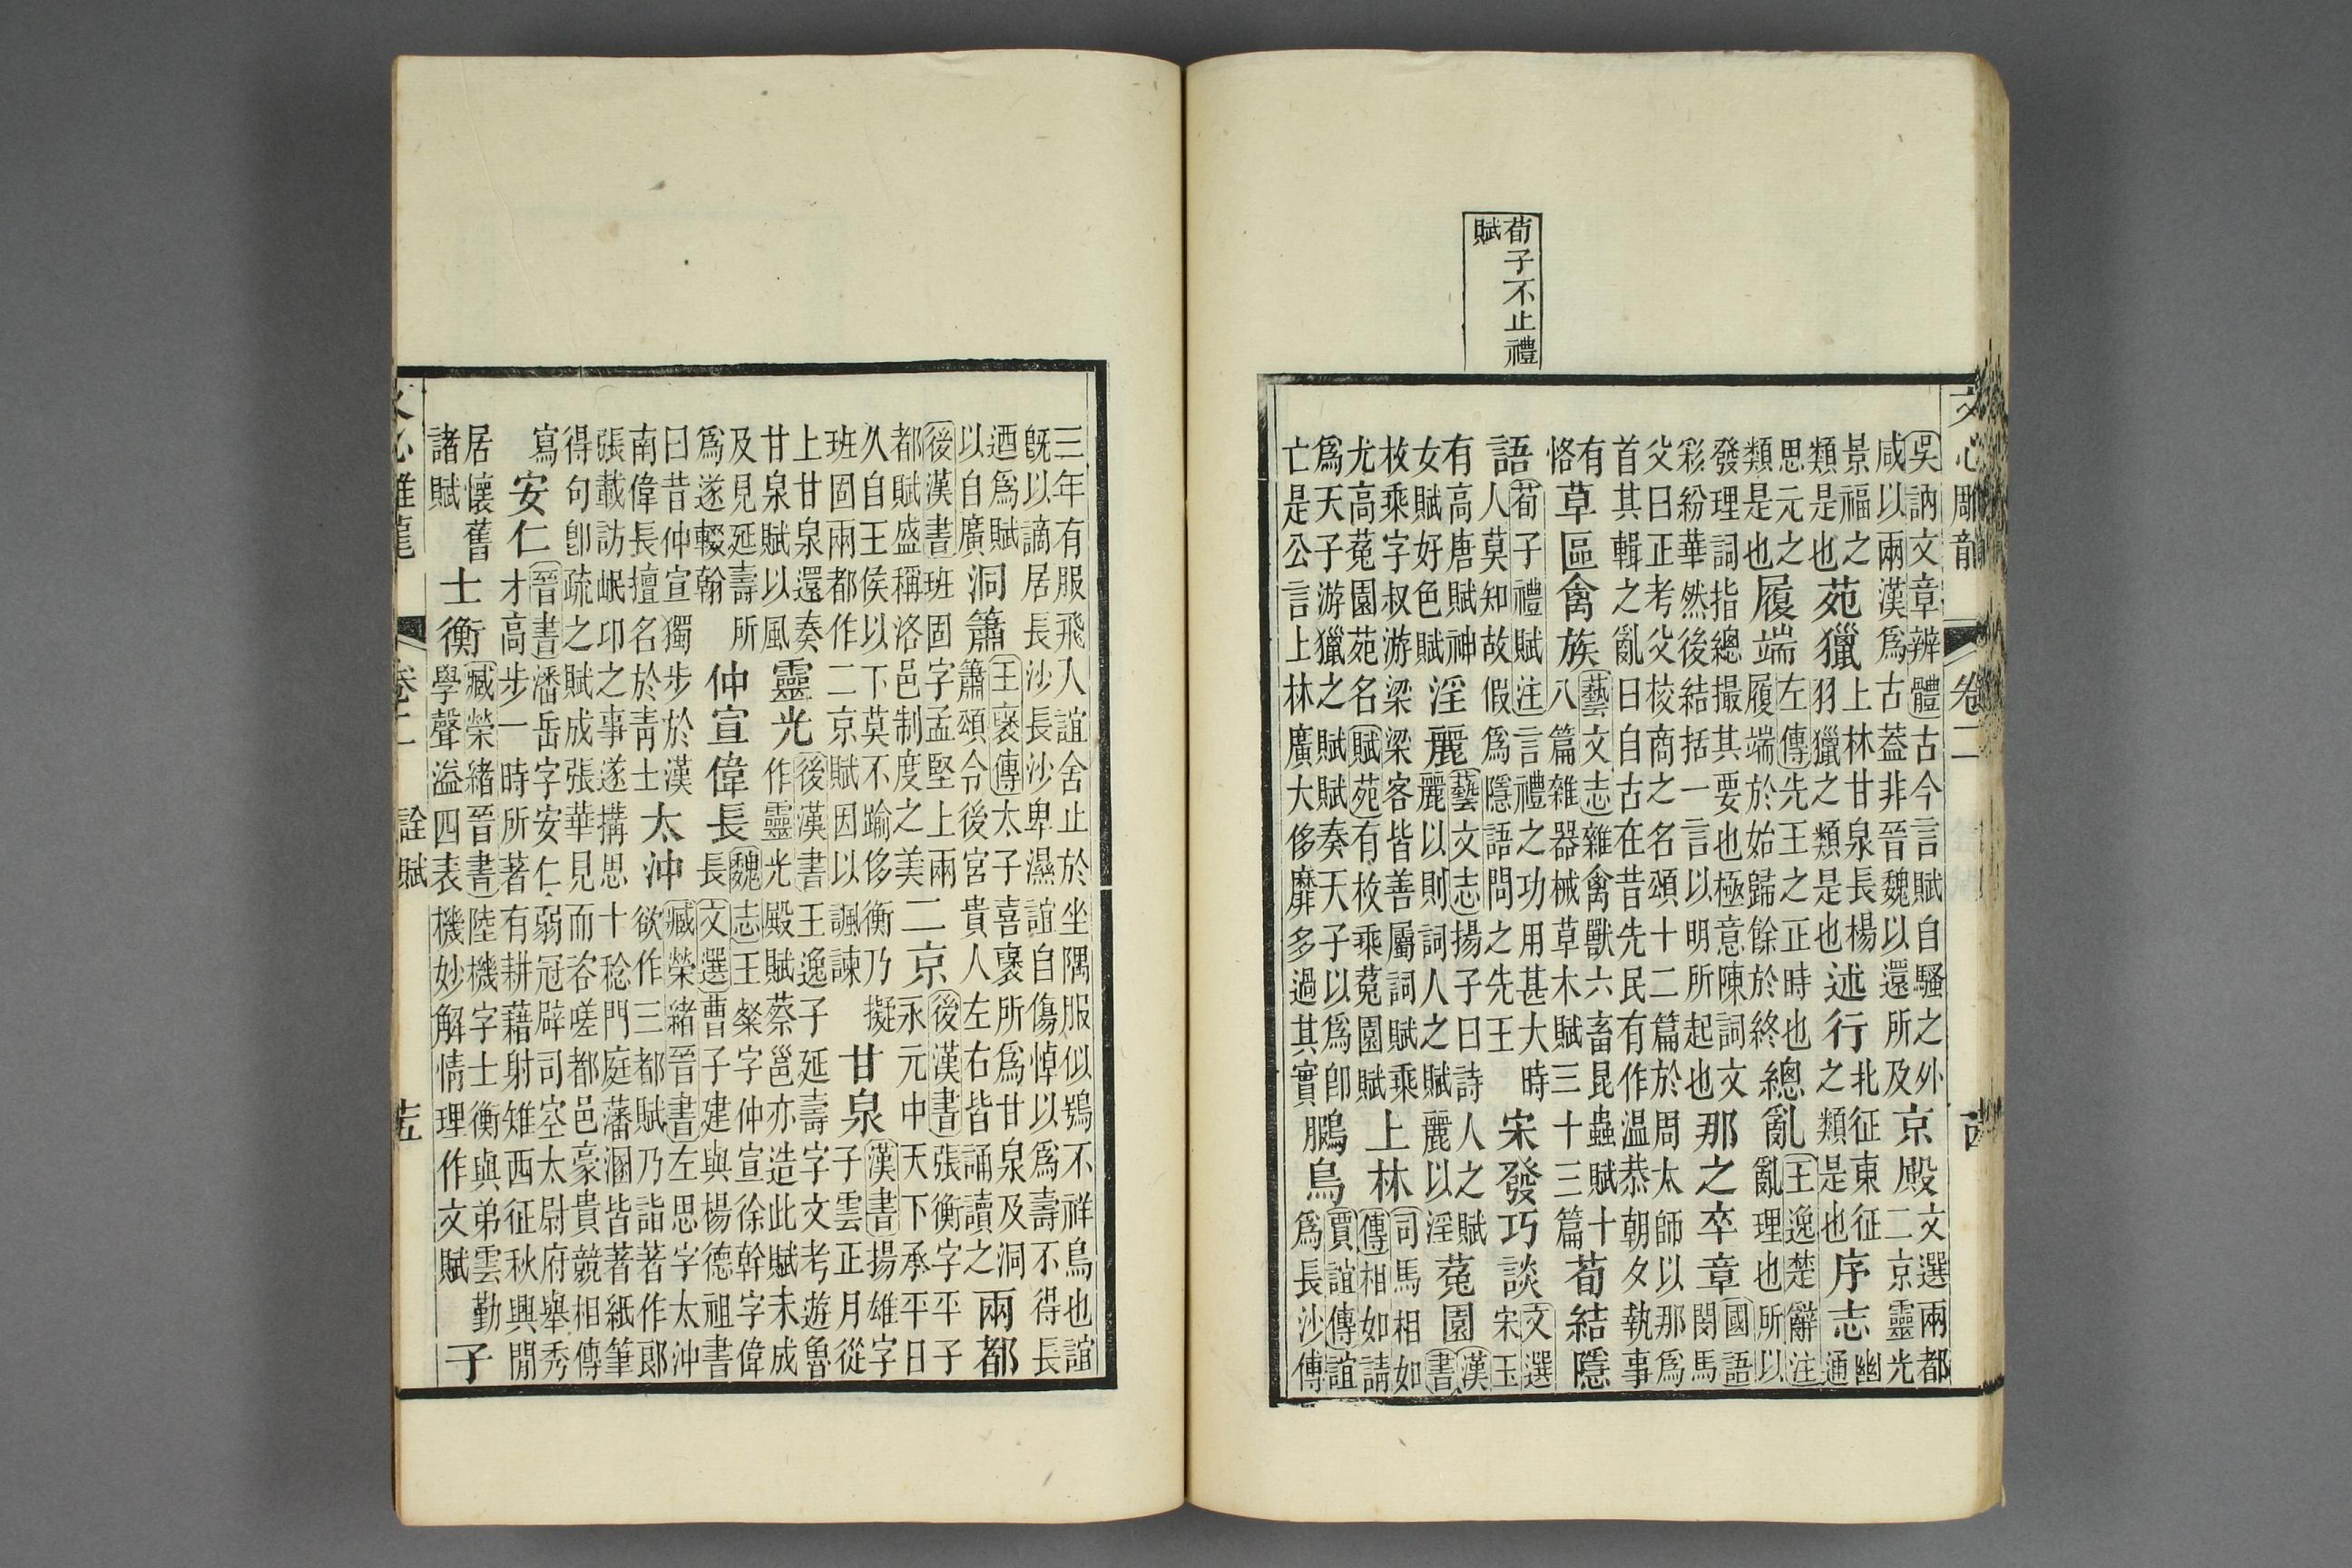 文心雕龍 卷二
荀子不止禮
賦
吳訥文章辨體古今言賦自騷之外咸以兩漢爲古蓋非晉魏以還所及京殿文選兩都二京靈光
景福之類是也苑獵上林甘泉長楊羽獵之類是也述行北征東征之類是也序志幽通
思元之類是也履端左傳先王之正時也履端於始歸餘於終總亂王逸楚辭注亂理也所以
發理詞指總撮其要也極意陳詞文彩紛華然後結括一言以明所起也那之卒章國語閔馬
父曰正考父校商之名頌十二篇於周太師以那爲首其輯之亂曰自古在昔先民有作温恭朝夕執事
有恪草區禽族藝文志雜禽獸六畜昆蟲賦十八篇雜器械草木賦三十三篇荀結隱
語荀子禮賦注言禮之功用甚大時人莫知故假爲隱語問之先王宋發巧談文選宋玉
有高唐賦神女賦好色賦淫麗藝文志揚子曰詩人之賦麗以則詞人之賦麗以淫菟園漢書
枚乘字叔游梁梁客皆善屬詞賦乘尤高菟園苑名賦苑有枚乘菟園賦上林司馬相如傳相如請
爲天子游獵之賦賦奏天子以爲郎亡是公言上林廣大侈靡多過其實鵩鳥賈誼傳誼爲長沙傅
三年有服飛入誼舍止於坐隅服似鴞不祥鳥也誼旣以謫居長沙長沙卑濕誼自傷悼以爲壽不得長
迺爲賦以自廣洞簫王襃傳太子喜襃所爲甘泉及洞簫頌令後宮貴人左右皆誦讀之兩都
後漢書班固字孟堅上兩都賦盛稱洛邑制度之美二京後漢書張衡字平子永元中天下承平日
久自王侯以下莫不踰侈衡乃擬班固兩都作二京賦因以諷諫甘泉漢書揚雄字子雲正月從
上甘泉還奏甘泉賦以風靈光後漢書王逸子延壽字文考遊魯作靈光殿賦蔡邕亦造此賦未成
及見延壽所爲遂輟翰仲宣偉長魏志王粲字仲宣徐幹字偉長文選曹子建與楊德祖書
曰昔仲宣獨步於漢南偉長擅名於靑士太沖臧榮緒晉書左思字太沖欲作三都賦乃詣著作郎
張載訪岷邛之事遂搆思十稔門庭藩溷皆著紙筆得句卽疏之賦成張華見而咨嗟都邑豪貴競相傳
寫安仁晉書潘岳字安仁弱冠辟司空太尉府舉秀才高步一時所著有耕藉射雉西征秋興閒
居懷舊諸賦士衡臧榮緒晉書陸機字士衡與弟雲勤學聲溢四表機妙解情理作文賦子
文心雕龍 卷二 詮賦 十五